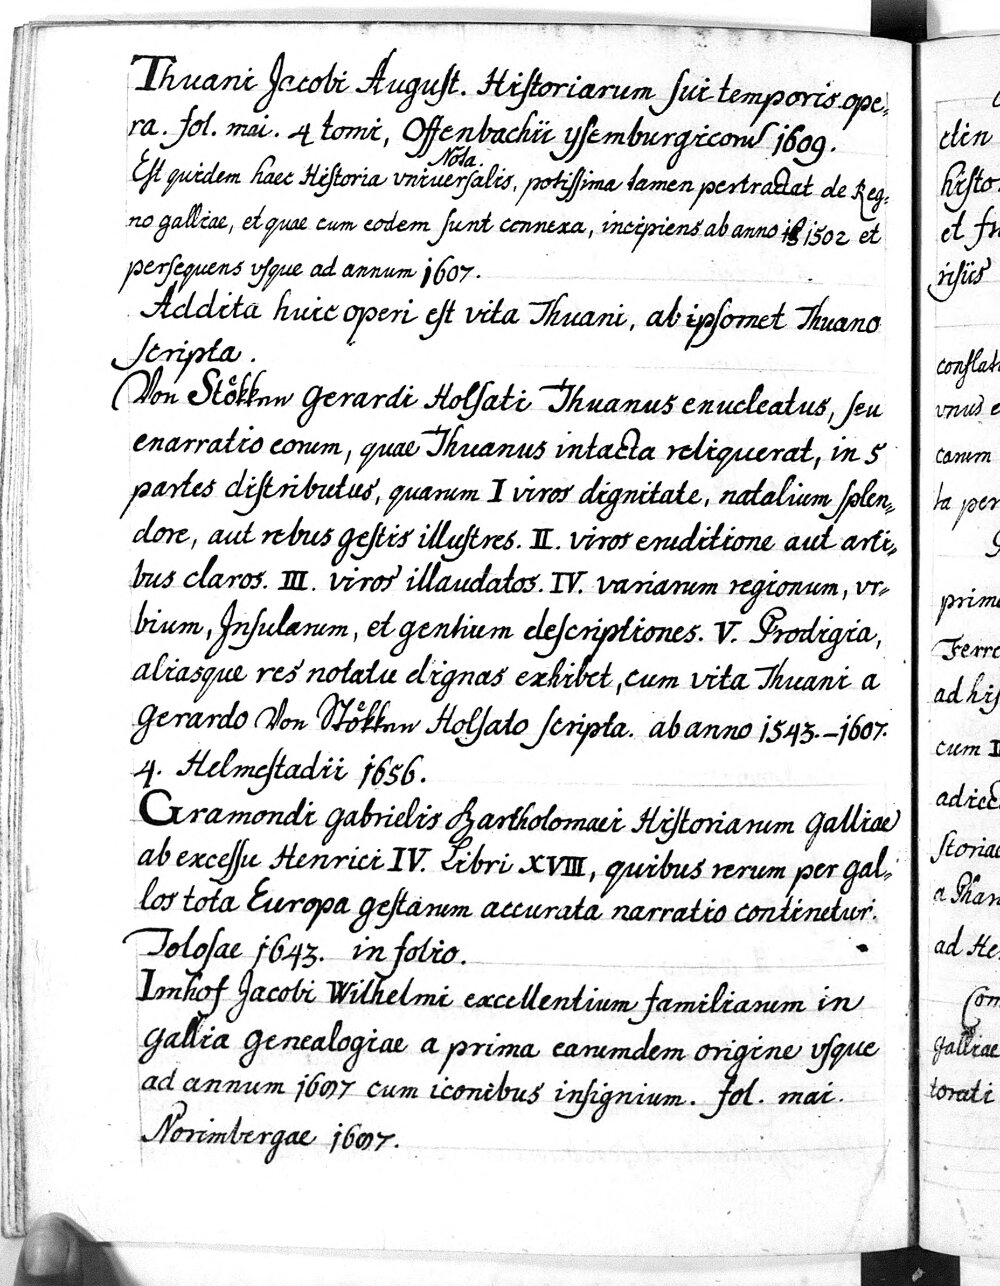 Thuani Jacobi August. Historiarum sui temporis ope=
ra. fol. mai. 4 tomi, Offenbachii ysemburgicorū 1609.
Nota.
Est quidem haec Historia vniuersalis, potissima tamen pertractat de Reg=
no galliae, et quae cum eodem sunt connexa, incipiens ab anno 1502 et
persequens vsque ad annum 1607.
Addita huic operi est vita Thuani, ab ipsomet Thuano
scripta.
Von Stökken gerardi Holsati Thuanus enucleatus, seu
enarratio eorum, quae Thuanus intacta reliquerat, in 5
partes distributus, quarum I viros dignitate, natalium splen=
dore, aut rebus gestis illustres. II. viros eruditione aut arti=
bus claros. III. viros illaudatos. IV. variarum regionum, vr=
bium, Insularum, et gentium descriptiones. V. Prodigia,
aliasque res notatu dignas exhibet, cum vita Thuani a
gerardo Von Stökken Holsato scripta. ab anno 1543.–1607.
4. Helmestadii 1656.
Gramondi gabrielis Bartholomaei Historiarum galliae
ab excessu Henrici IV. Libri XVIII, quibus rerum per gal=
los tota Europa gestarum accurata narratio continetur.
Tolosae 1643. in folio.
Imhof Jacobi Wilhelmi excellentium familiarum in
gallia genealogiae a prima earumdem origine vsque
ad annum 1687 cum iconibus insignium. fol. mai.
Norimbergae 1687.
ctin
histo.
et
risiis
constat
vnus e
carum
ta per
prima
Ferre
ad his
cum
adiec
storia
ad He
Com
galliae
torati